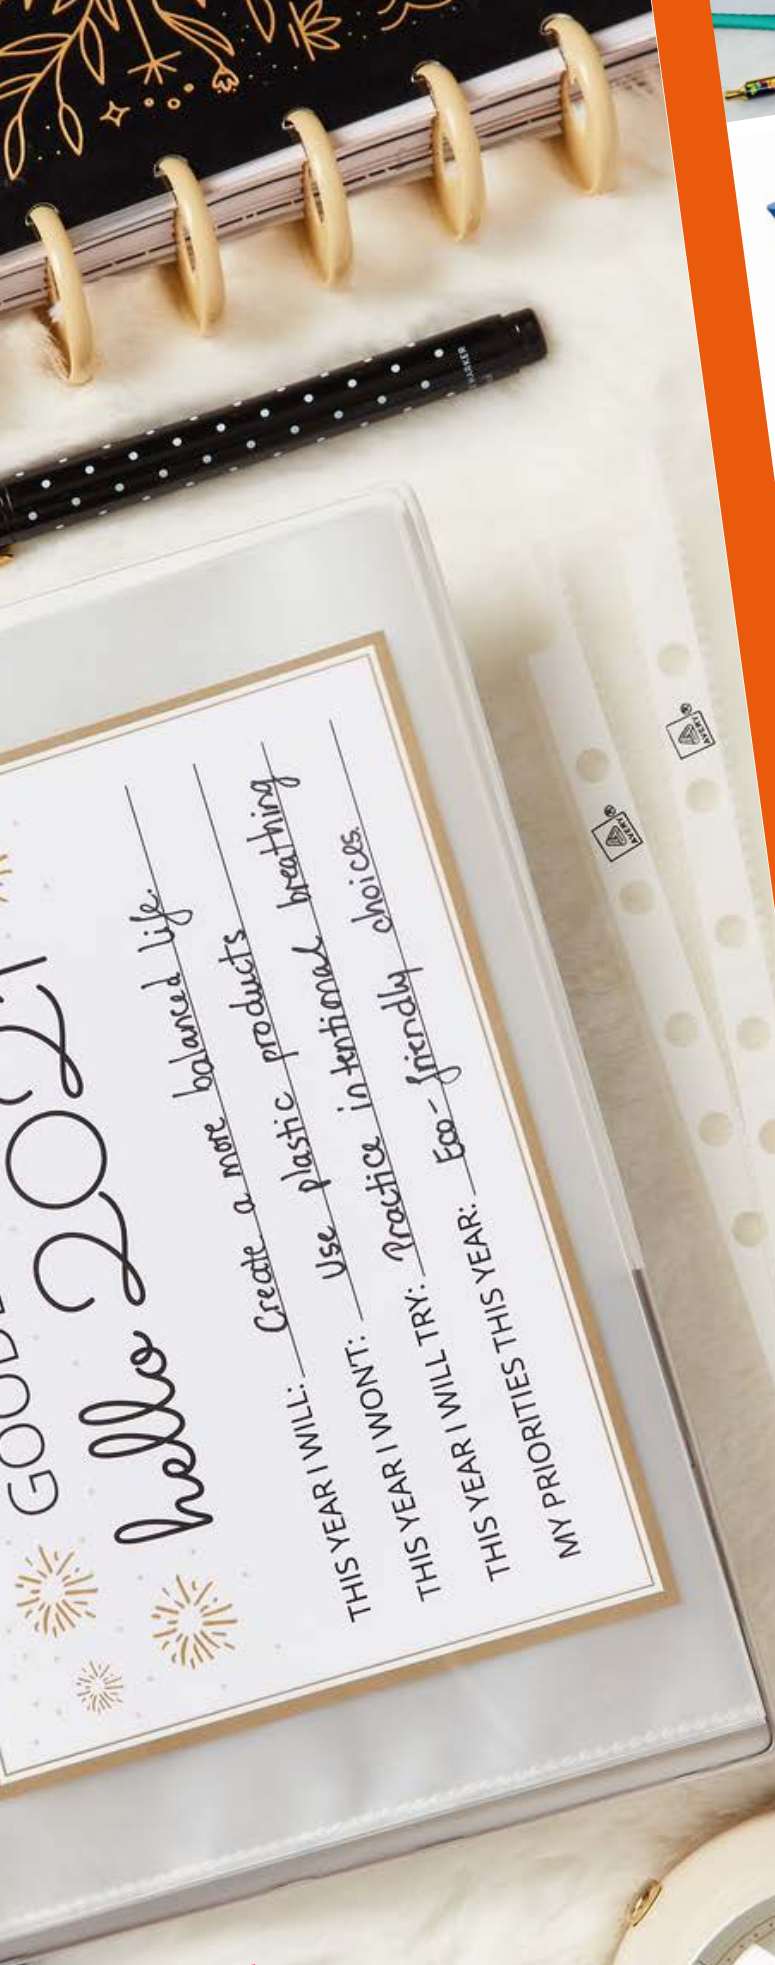 GOODB
hello 2021
THIS YEAR I WILL: Create a more balanced life.
THIS YEAR I WON'T: Use plastic products
THIS YEAR I WILL TRY: Practice intentional breathing
MY PRIORITIES THIS YEAR: Eco-friendly choices.
MARKER
AVERY
AVERY